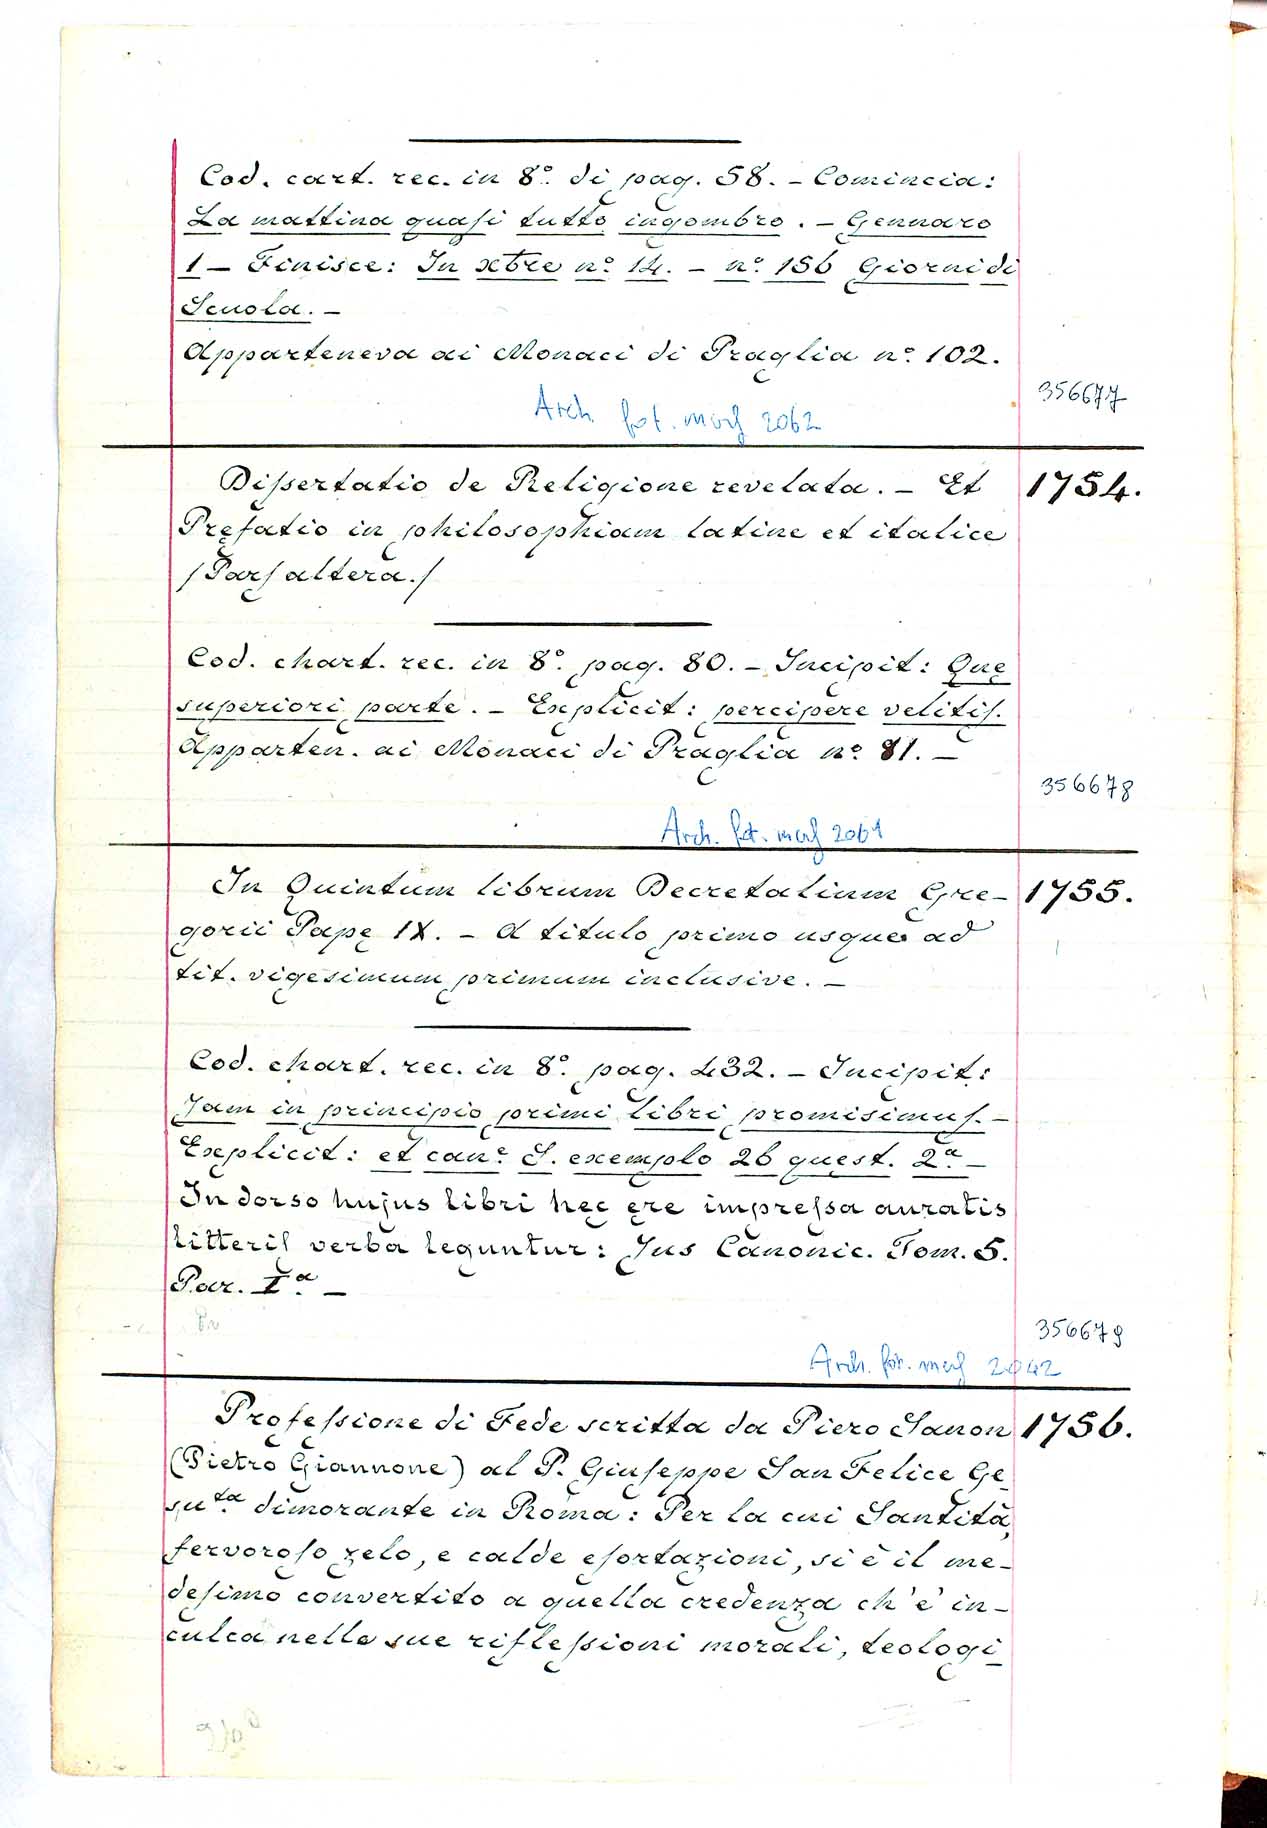 Cod. cart. rec. in 8.° di pag. 58. – Comincia:
La mattina quaſi tutto ingombro. – Gennaro
1 – Finisce: In xbre n.° 14. – n.° 156 Giorni di
Scuola. –
Apparteneva ai Monaci di Praglia n.° 102.
356677
Arch. fot. marc 2062
Diſsertatio de Religione revelata. – Et 1754.
Pręfatio in philosophiam latine et italice
/Parſ altera./
Cod. chart. rec. in 8.° pag. 80. – Incipit: Quę
superiori parte. – Explicit: percipere velitiſ.
Apparten. ai Monaci di Praglia n.° 81. –
356678
Arch. fot. marc 2061
In Quintum librum Decretalium Gre- 1755.
gorii Papę IX. – A titulo primo usque ad
tit. vigesimum primum inclusive. –
Cod. chart. rec. in 8.° pag. 432. – Incipit:
Jam in principio primi libri promisimuſ. –
Explicit: et can.° S. exemplo 26 quęst. 2.ª –
In dorso hujus libri hęc ęre impreſsa auratis
litteriſ verba leguntur: Jus Canonic. Tom. 5.
Par. I.ª –
356679
Arch. fot. marc 2042
Profeſsione di Fede scritta da Piero Sanon 1756.
(Pietro Giannone) al P. Giuſeppe San Felice Ge-
su.ta dimorante in Roma: Per la cui Santità,
fervoroſo zelo, e calde eſortazioni, si è il me-
deſimo convertito a quella credenza ch'è in-
culca nelle sue rifleſsioni morali, teologi-